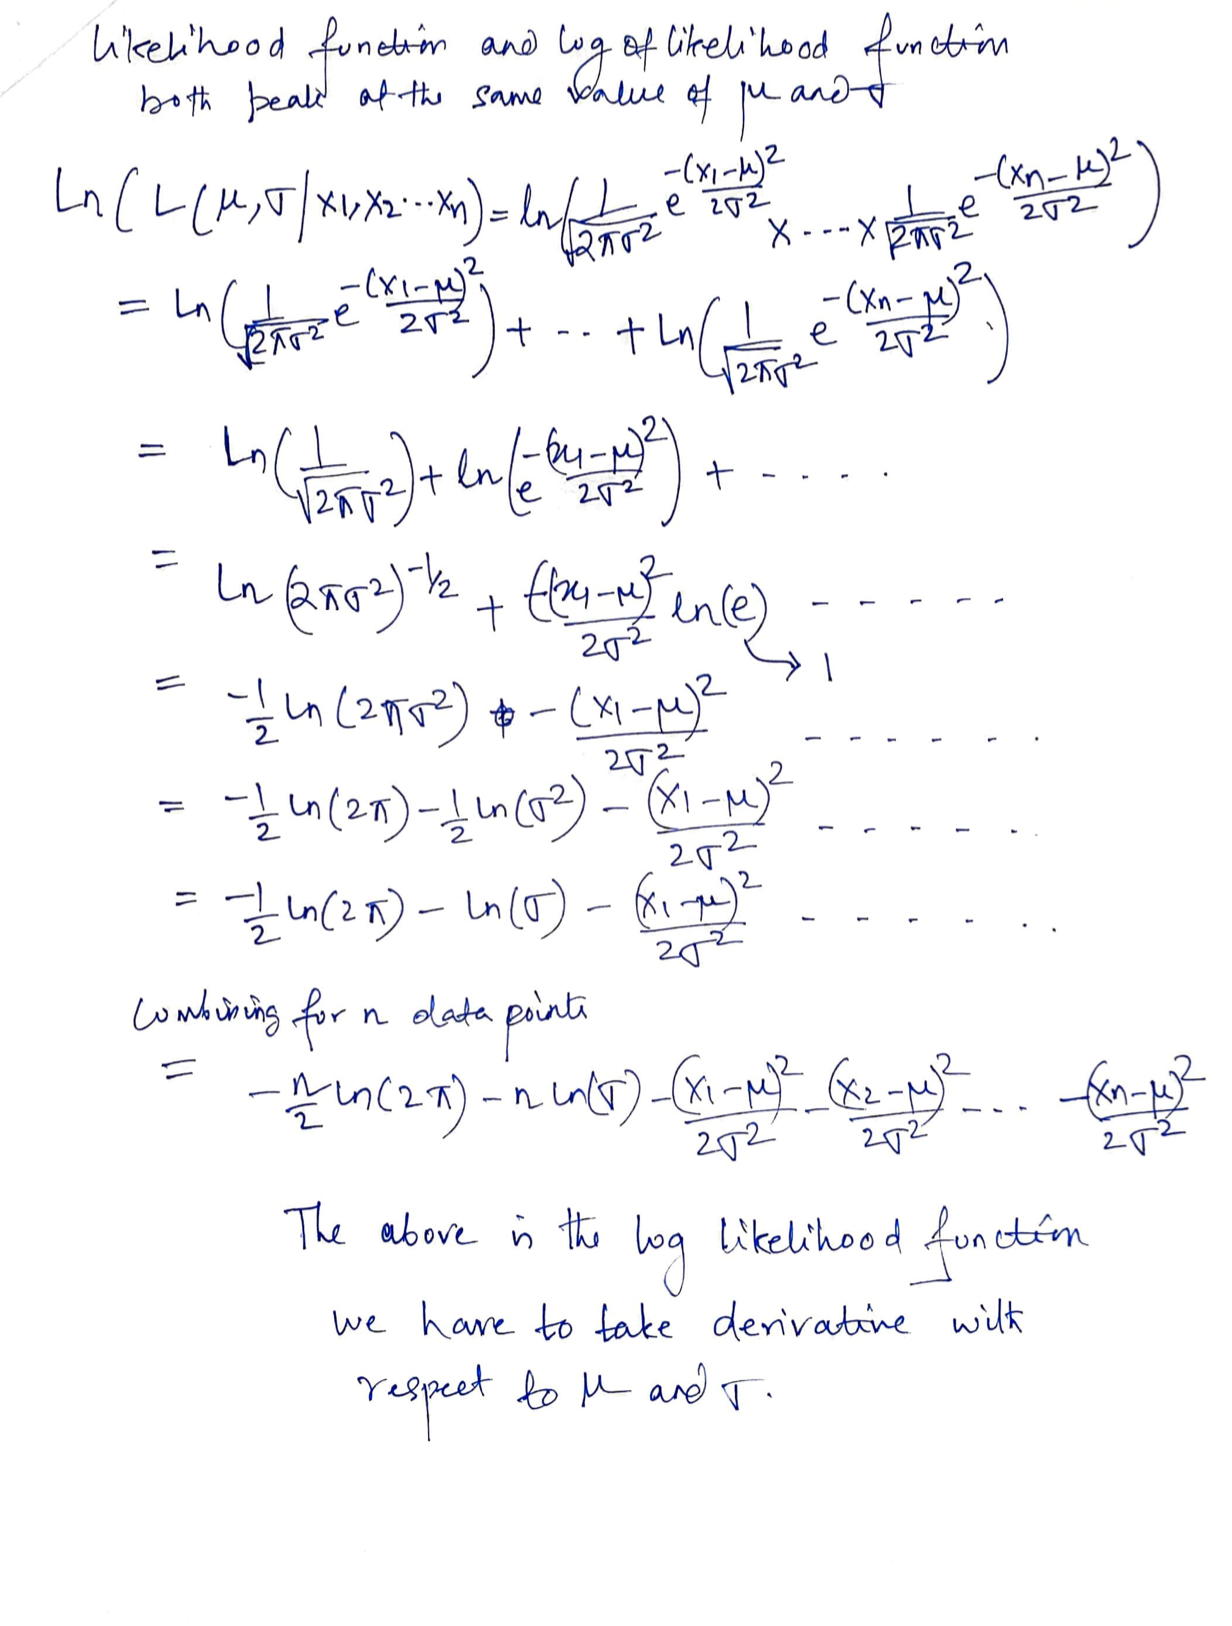 Likelihood function and log of likelihood function
both peak at the same value of μ and σ
Ln(L(μ,σ|x1,x2...xn) = ln(1/√(2πσ²) e^(-(x1-μ)²/2σ²) x ---x 1/√(2πσ²) e^(-(xn-μ)²/2σ²))
= Ln(1/√(2πσ²) e^(-(x1-μ)²/2σ²)) + -- + Ln(1/√(2πσ²) e^(-(xn-μ)²/2σ²))
= Ln(1/√(2πσ²)) + ln(e^(-(x1-μ)²/2σ²)) + - - . .
= Ln(2πσ²)^(-1/2) + -(x1-μ)²/2σ² ln(e) - - - - -
→ 1
= -1/2 Ln(2πσ²) - (x1-μ)²/2σ² - - - - - .
= -1/2 Ln(2π) - 1/2 Ln(σ²) - (x1-μ)²/2σ² - - - - . .
= -1/2 Ln(2π) - Ln(σ) - (x1-μ)²/2σ² - - - - . .
Combining for n data points
= -n/2 Ln(2π) - n Ln(σ) - (x1-μ)²/2σ² - (x2-μ)²/2σ² - ... -(xn-μ)²/2σ²
The above is the log likelihood function
we have to take derivative with
respect to μ and σ.